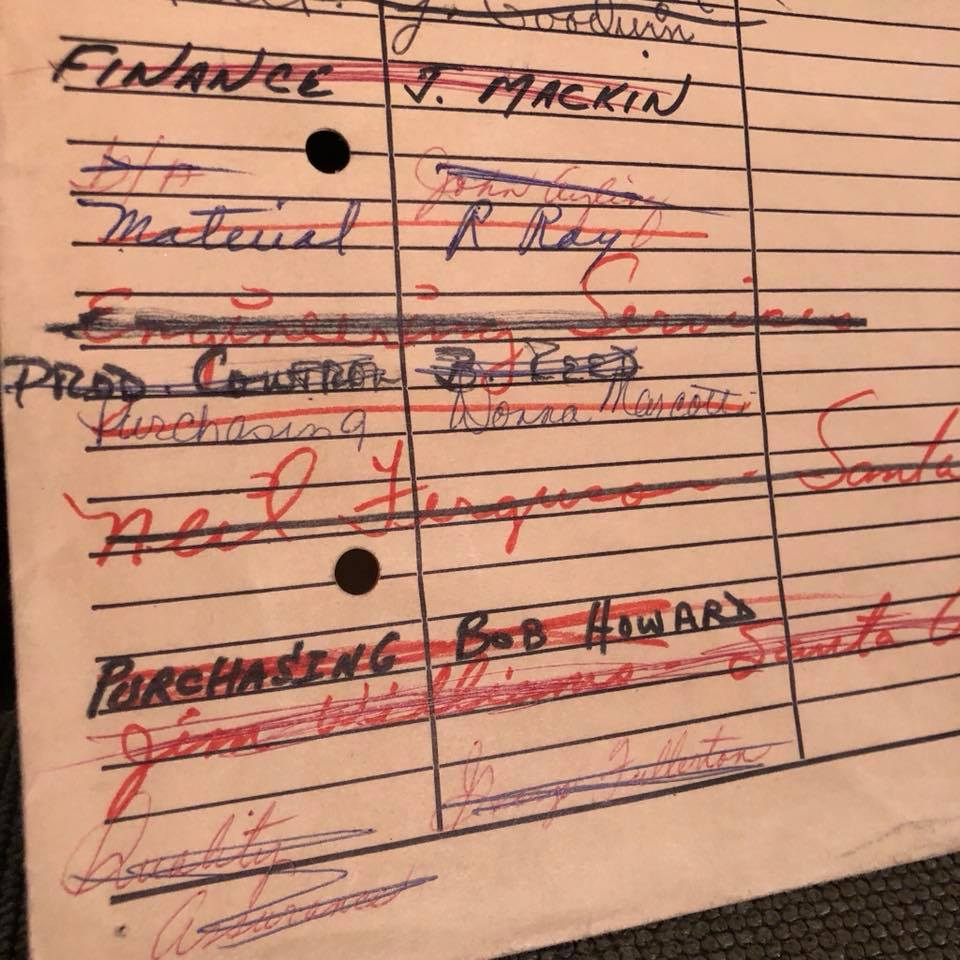 Goodwin
FINANCE J. MACKIN
John
Material R Ray
Engineering Services
PROD. CONTROL B. REED
Purchasing Donna Marcotti
Neil Ferguson - Santa
PURCHASING BOB HOWARD
Jim Williams - Santa
Quality George Fullerton
Assurance